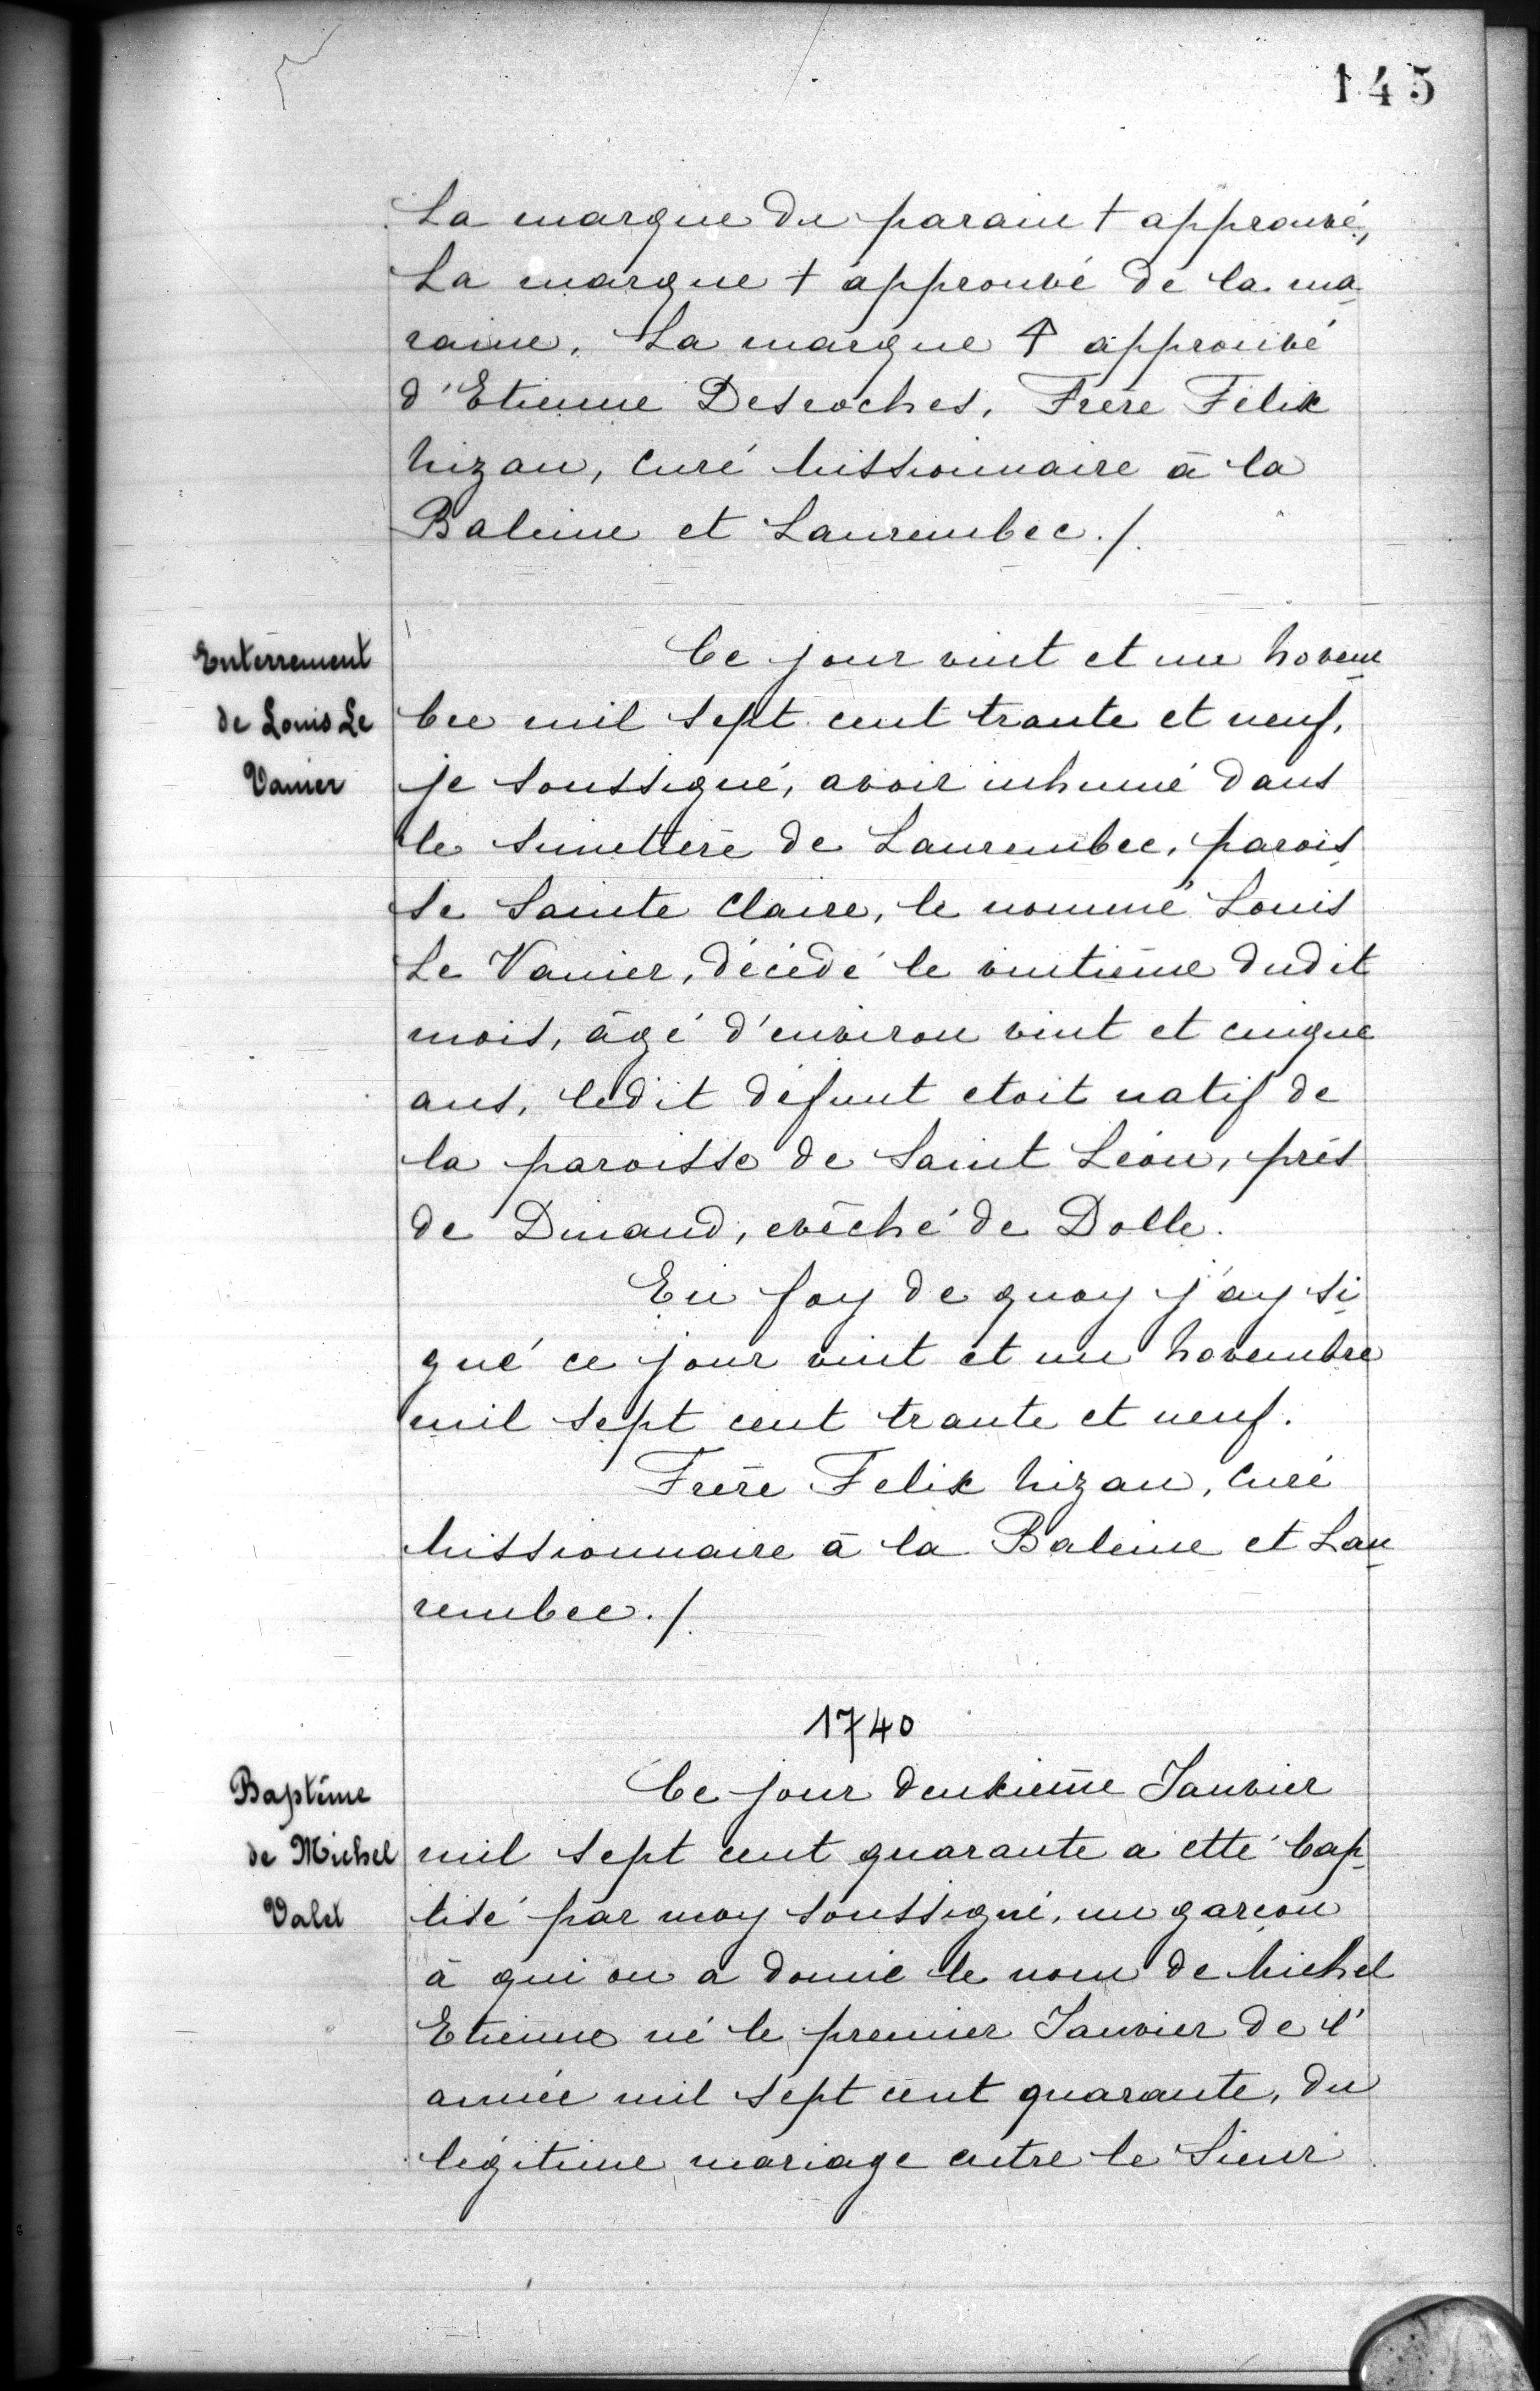 145
La marque du parain † approuvé,
La marque † approuvé de la ma-
raine. La marque ↑ approuvé
d'Etienne Desroches. Frère Félix
Nizan, Curé Missionnaire à la
Baleine et Laurembec./.
Enterrement
de Louis Le
Vanier
Ce jour vint et un Novem-
bre mil sept cent trante et neuf,
je soussigné, avoir inhumé dans
le simettere de Laurembec, parois-
se Sainte Claire, le nommé Louis
Le Vanier, décédé le vintième dudit
mois, âgé d'environ vint et cinque
ans, ledit défunt etoit natif de
la paroisse de Saint Léon, près
de Dinand, evêché de Dolle.
En foy de quoy j'ay si-
gné ce jour vint et un Novembre
mil sept cent trante et neuf.
Frère Felix Nizan, Curé
Missionnaire à la Baleine et Lau-
rembec./.
1740
Baptême
de Michel
Valet
Ce jour deuxième Janvier
mil sept cent quarante a etté bap-
tisé par moy soussigné, un garçon
à qui on a donné le nom de Michel
Etienne né le premier Janvier de l'
année mil sept cent quarante, du
légitime mariage entre le Sieur